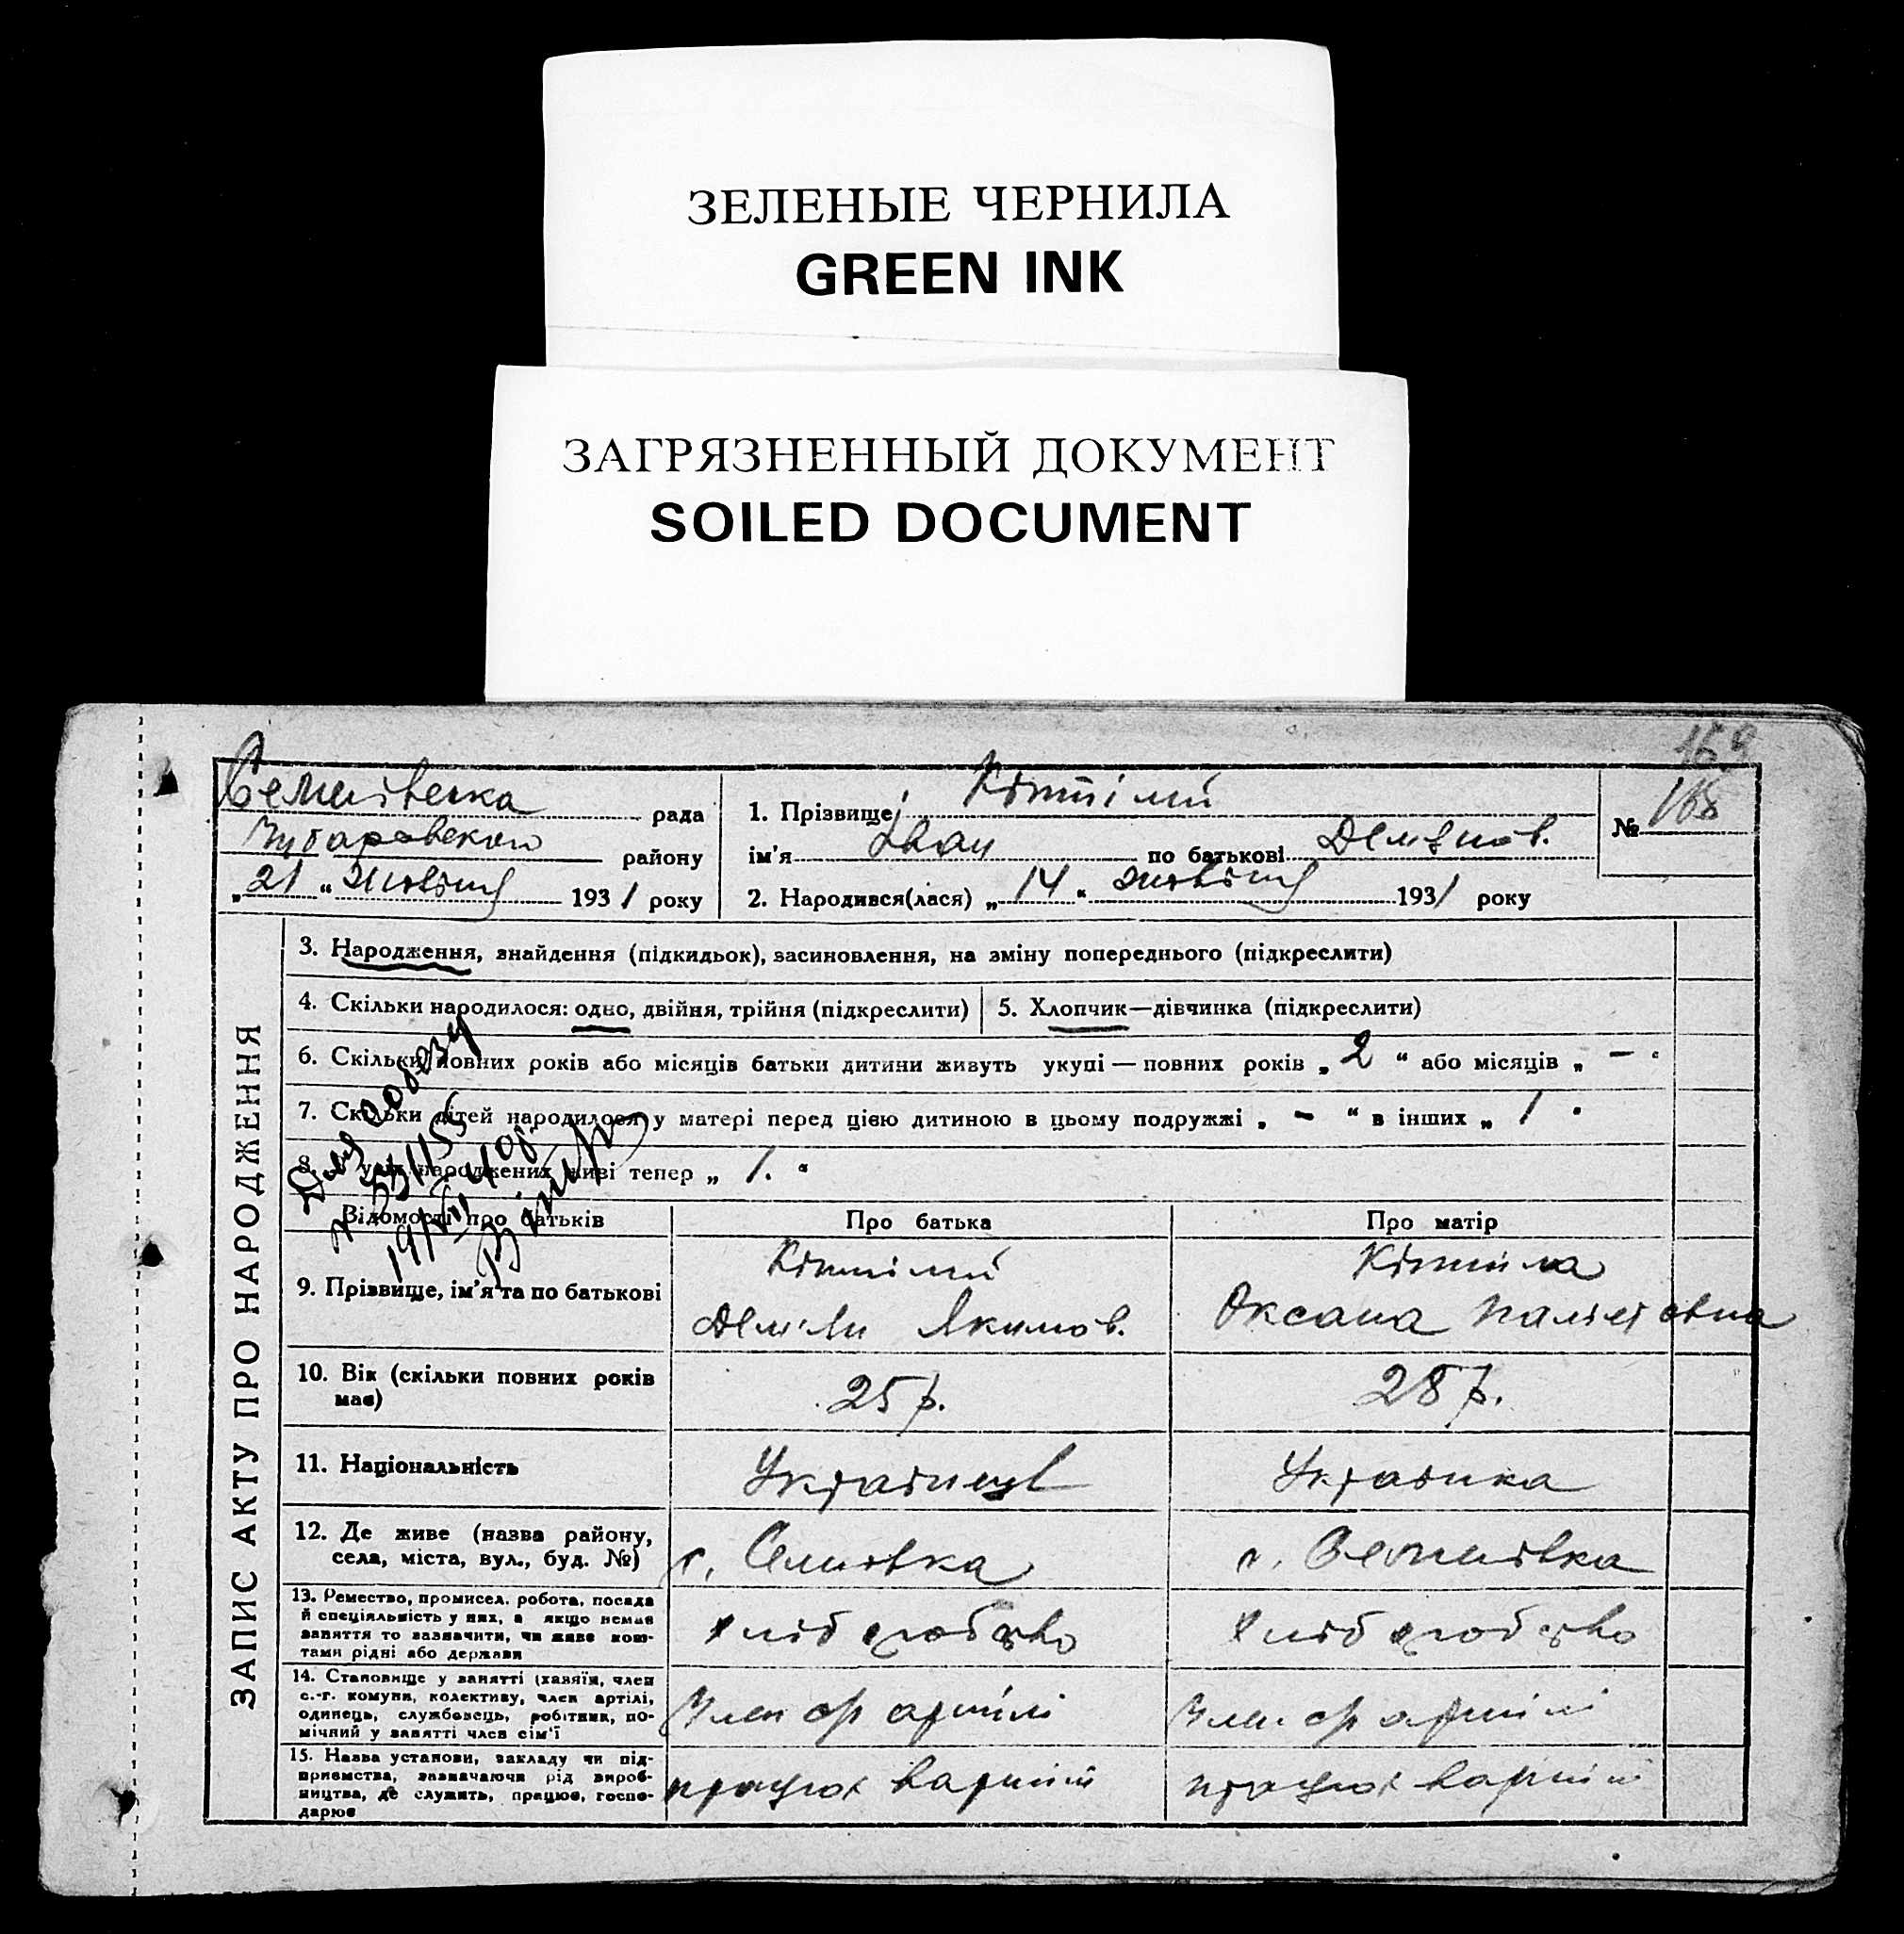 ЗЕЛЕНЫЕ ЧЕРНИЛА
GREEN INK
ЗАГРЯЗНЕННЫЙ ДОКУМЕНТ
SOILED DOCUMENT
159
рада
району
„21“ жовтня 1931 року
1. Прізвище
ім'я Іван по батькові
2. Народився(лася) „14“ жовтня 1931 року
№ 158
ЗАПИС АКТУ ПРО НАРОДЖЕННЯ
3. Народження, знайдення (підкидьок), засиновлення, на зміну попереднього (підкреслити)
4. Скільки народилося: одно, двійня, трійня (підкреслити)
5. Хлопчик—дівчинка (підкреслити)
6. Скільки повних років або місяців батьки дитини живуть укупі — повних років „2“ або місяців „—“
7. Скільки дітей народилося у матері перед цією дитиною в цьому подружжі „—“ в інших „1“
8. народжених живі тепер „1.“
Відомості про батьків
Про батька
Про матір
9. Прізвище, ім'я та по батькові
Якимов.
Оксана
10. Вік (скільки повних років має)
25 р.
28 р.
11. Національність
Українець
Українка
12. Де живе (назва району, села, міста, вул., буд. №)
с. Семиївка
с. Семиївка
13. Ремество, промисел, робота, посада й спеціяльність у них, а якщо немає заняття то зазначити, чи живе коштами рідні або держави
хліборобство
хліборобство
14. Становище у занятті (хазяїн, член с.-г. комуни, колективу, член артілі, одинець, службовець, робітник, помічний у занятті член сім'ї
Член с/г артілі
Член с/г артілі
15. Назва установи, закладу чи підприємства, зазначаючи рід виробництва, де служить, працює, господарює
працює в артілі
працює в артілі